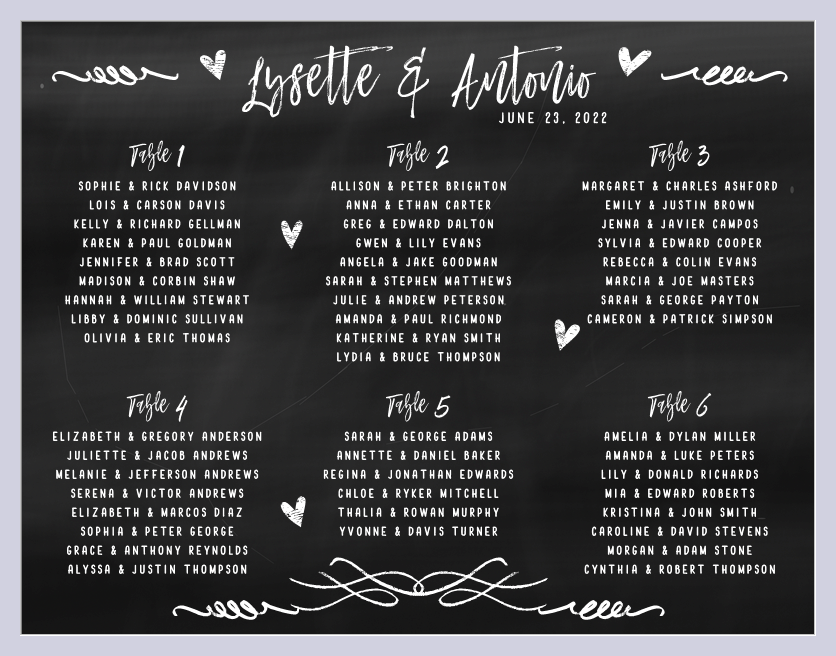 Lysette & Antonio
JUNE 23, 2022
Table 1
SOPHIE & RICK DAVIDSON
LOIS & CARSON DAVIS
KELLY & RICHARD GELLMAN
KAREN & PAUL GOLDMAN
JENNIFER & BRAD SCOTT
MADISON & CORBIN SHAW
HANNAH & WILLIAM STEWART
LIBBY & DOMINIC SULLIVAN
OLIVIA & ERIC THOMAS
Table 2
ALLISON & PETER BRIGHTON
ANNA & ETHAN CARTER
GREG & EDWARD DALTON
GWEN & LILY EVANS
ANGELA & JAKE GOODMAN
SARAH & STEPHEN MATTHEWS
JULIE & ANDREW PETERSON
AMANDA & PAUL RICHMOND
KATHERINE & RYAN SMITH
LYDIA & BRUCE THOMPSON
Table 3
MARGARET & CHARLES ASHFORD
EMILY & JUSTIN BROWN
JENNA & JAVIER CAMPOS
SYLVIA & EDWARD COOPER
REBECCA & COLIN EVANS
MARCIA & JOE MASTERS
SARAH & GEORGE PAYTON
CAMERON & PATRICK SIMPSON
Table 4
ELIZABETH & GREGORY ANDERSON
JULIETTE & JACOB ANDREWS
MELANIE & JEFFERSON ANDREWS
SERENA & VICTOR ANDREWS
ELIZABETH & MARCOS DIAZ
SOPHIA & PETER GEORGE
GRACE & ANTHONY REYNOLDS
ALYSSA & JUSTIN THOMPSON
Table 5
SARAH & GEORGE ADAMS
ANNETTE & DANIEL BAKER
REGINA & JONATHAN EDWARDS
CHLOE & RYKER MITCHELL
THALIA & ROWAN MURPHY
YVONNE & DAVIS TURNER
Table 6
AMELIA & DYLAN MILLER
AMANDA & LUKE PETERS
LILY & DONALD RICHARDS
MIA & EDWARD ROBERTS
KRISTINA & JOHN SMITH
CAROLINE & DAVID STEVENS
MORGAN & ADAM STONE
CYNTHIA & ROBERT THOMPSON